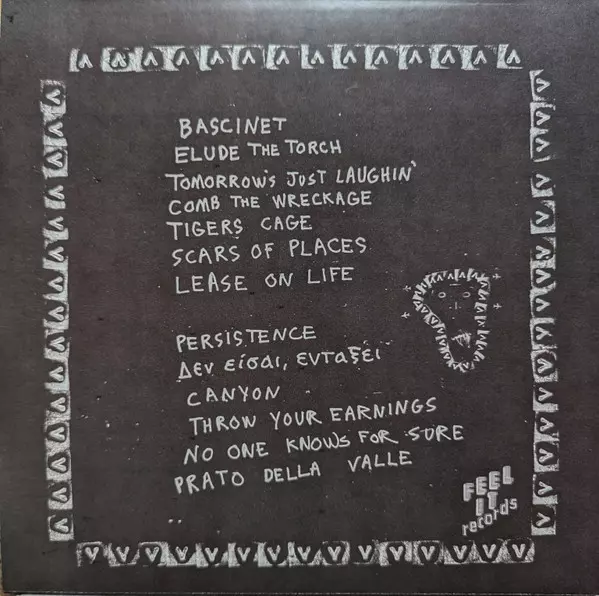 BASCINET
ELUDE THE TORCH
TOMORROW'S JUST LAUGHIN'
COMB THE WRECKAGE
TIGERS CAGE
SCARS OF PLACES
LEASE ON LIFE
PERSISTENCE
Δεν είσαι, ενταξει
CANYON
THROW YOUR EARNINGS
NO ONE KNOWS FOR SURE
PRATO DELLA VALLE
FEEL
IT
records